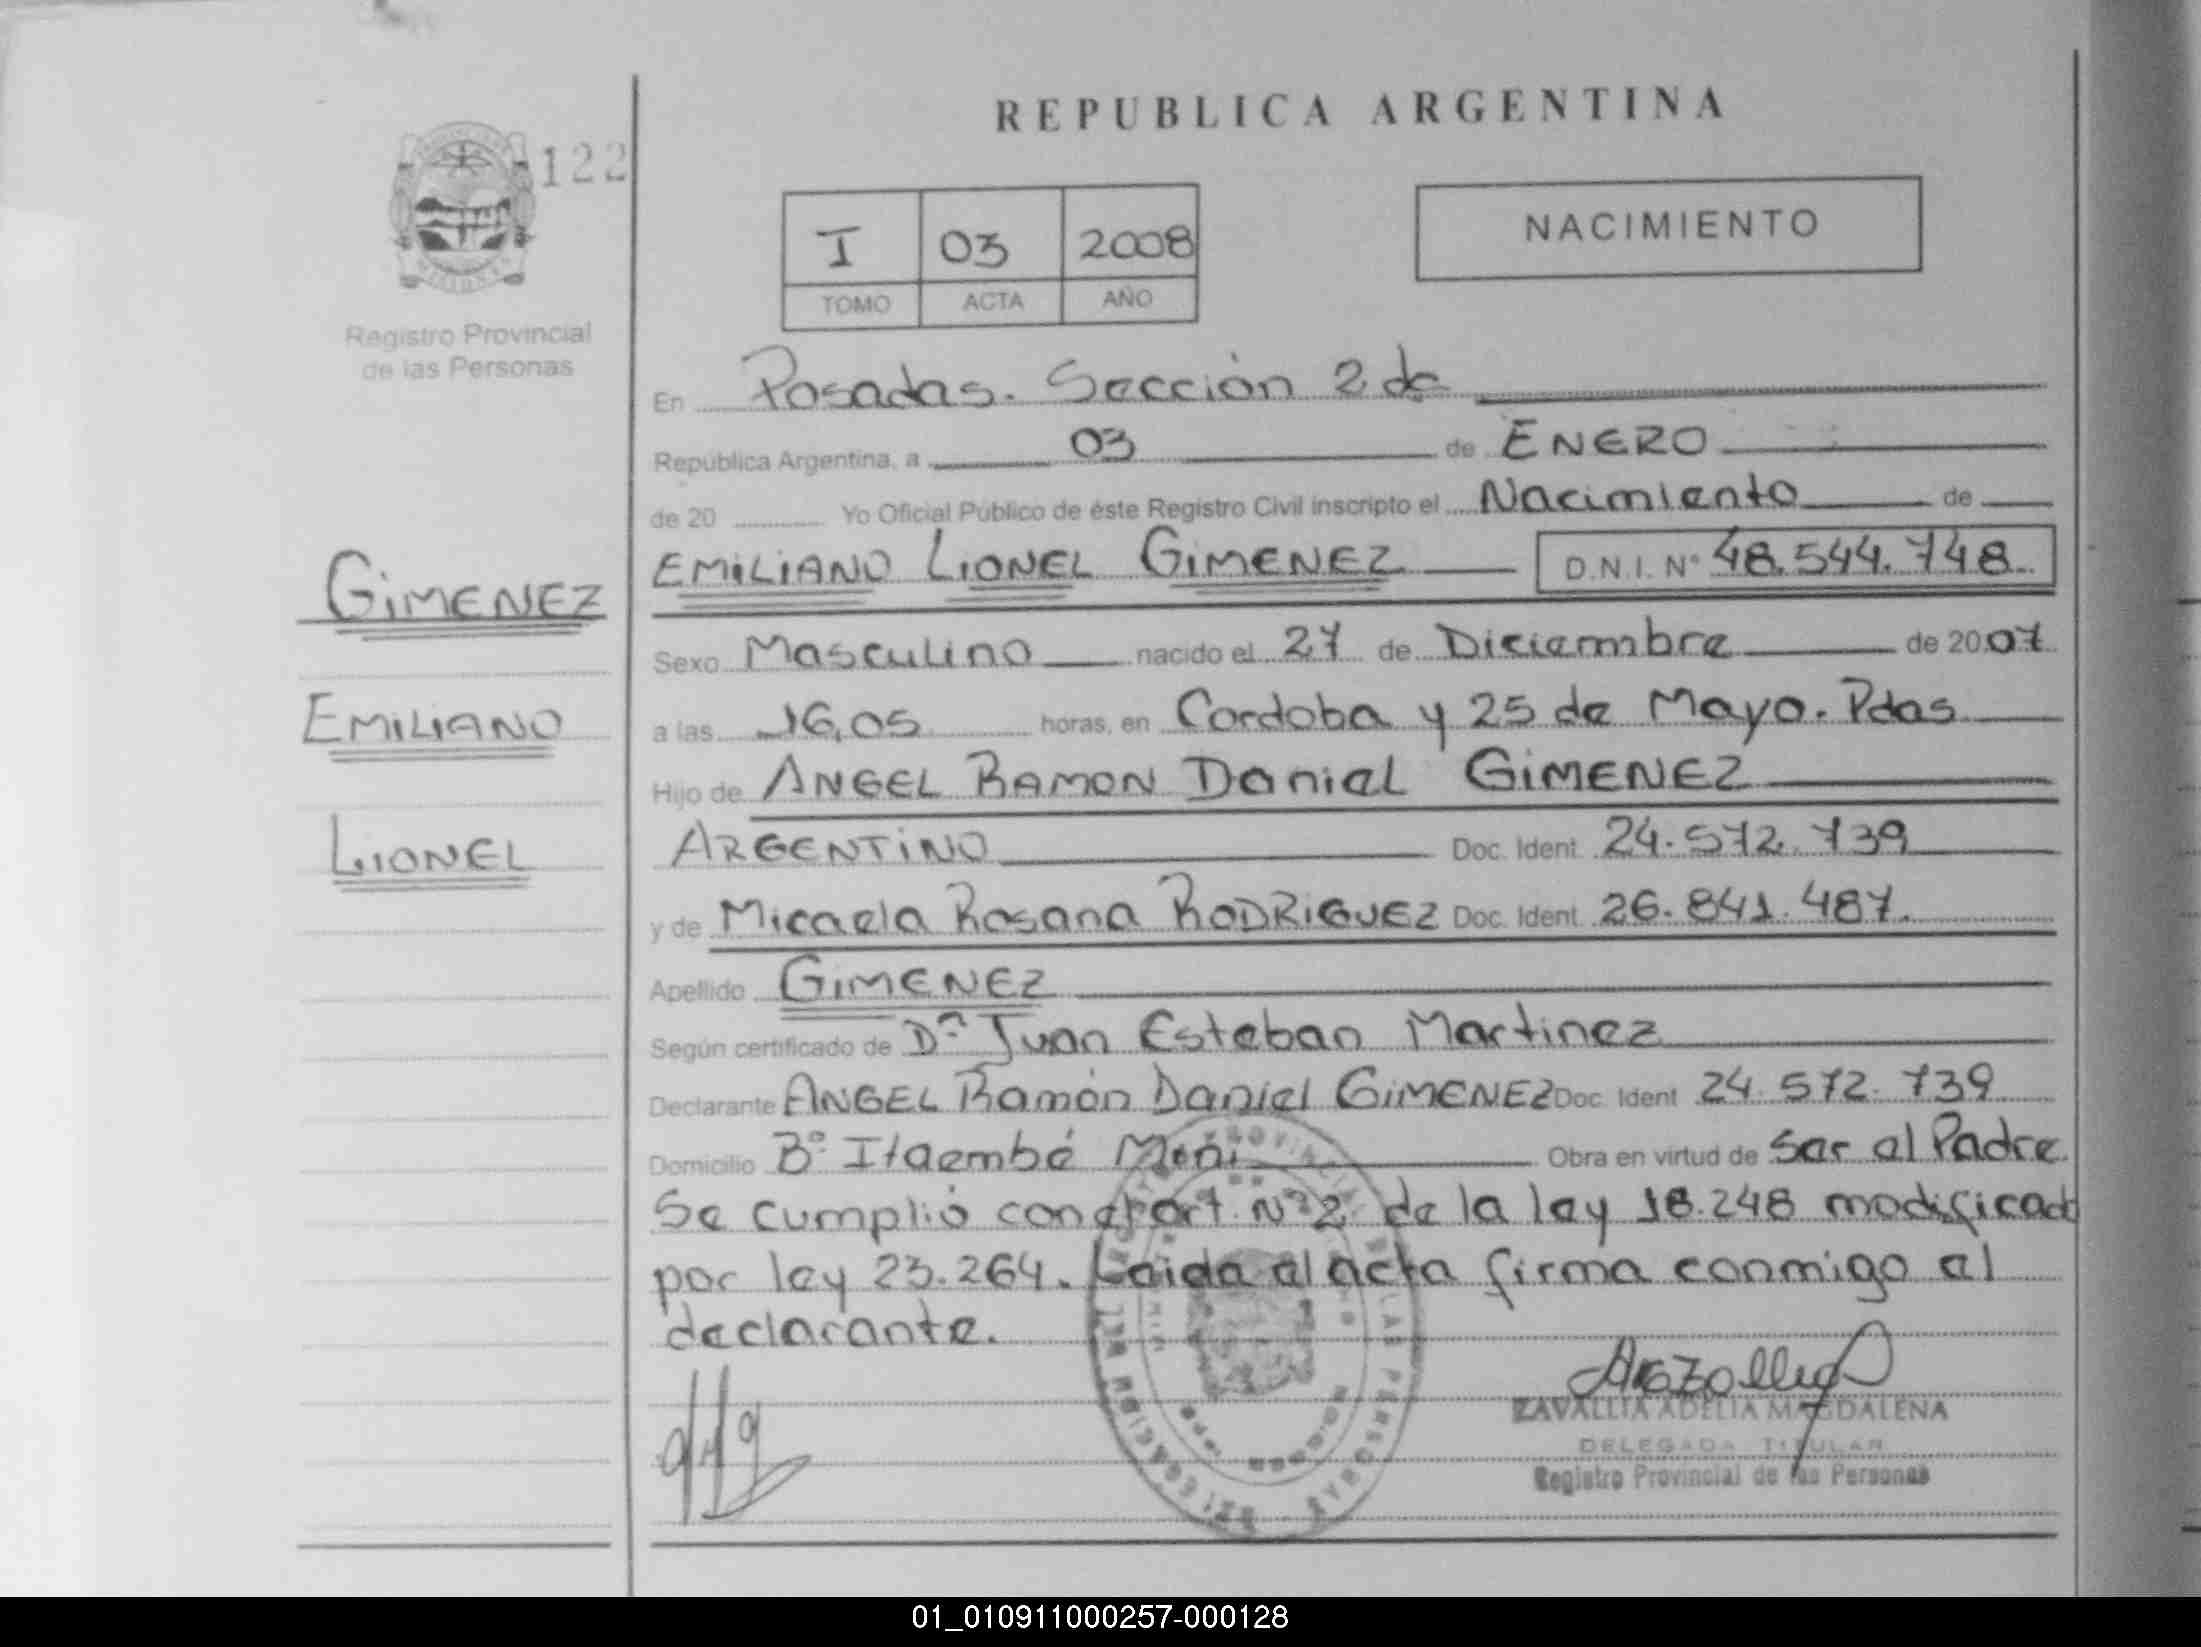 REPUBLICA ARGENTINA
122
I 03 2008
TOMO ACTA AÑO
NACIMIENTO
Registro Provincial
de las Personas
En Posadas. Sección 2 da
República Argentina, a 03 de ENERO
de 20 Yo Oficial Público de éste Registro Civil inscripto el Nacimiento de
EMILIANO LIONEL GIMENEZ D.N.I. Nº 48.544.748
GIMENEZ
Sexo Masculino nacido el 27 de Diciembre de 2007
EMILIANO
a las 16,05 horas, en Cordoba y 25 de Mayo. Pdas
Hijo de ANGEL RAMON Daniel GIMENEZ
LIONEL
ARGENTINO Doc. Ident. 24.572.739
y de Micaela Rosana RODRIGUEZ Doc. Ident. 26.841.487.
Apellido GIMENEZ
Según certificado de Dr Juan Esteban Martinez
Declarante ANGEL Ramón Daniel GIMENEZ Doc. Ident 24.572.739
Domicilio Bº Itaembé Mini Obra en virtud de Ser el Padre
Se cumplió con el art. Nº 2 de la ley 18.248 modificad
por ley 23.264. Leida el acta firma conmigo el
declarante.
ZAVALLIA ADELIA MAGDALENA
DELEGADA TITULAR
Registro Provincial de las Personas
01_010911000257-000128